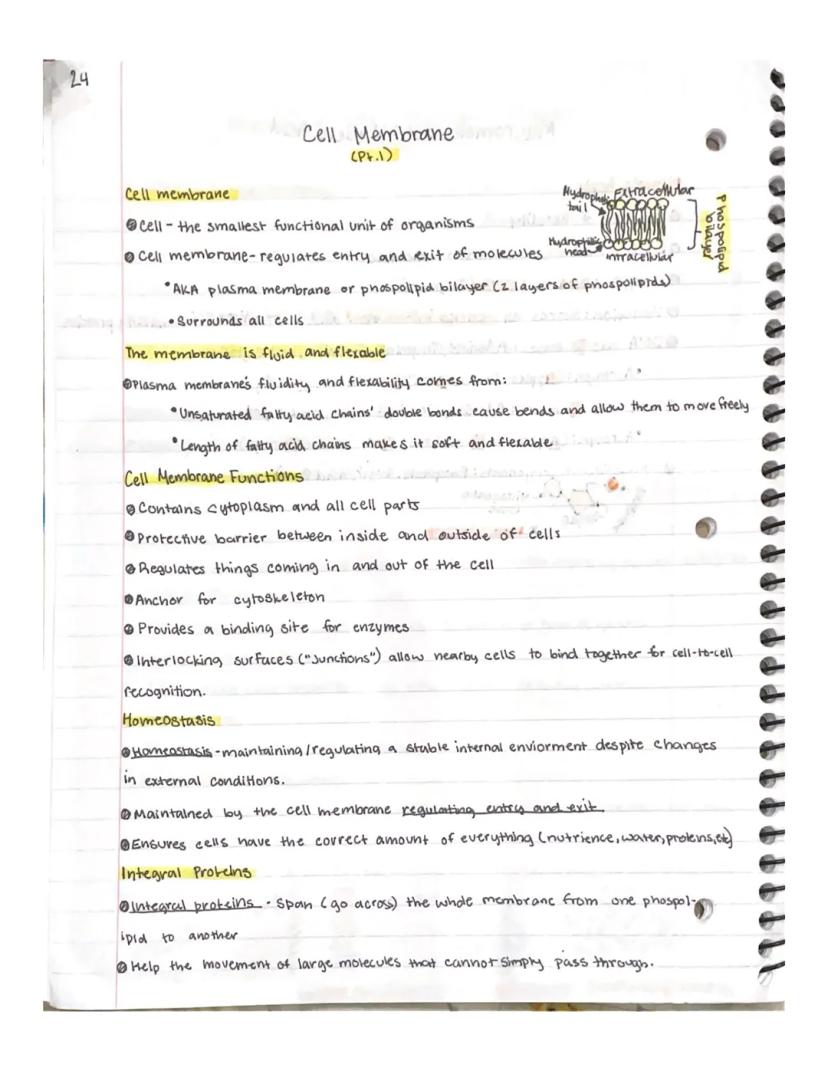 24
Cell Membrane
(Pt.1)
Cell membrane
Hydrophobic tail
Extracellular
Phospolipid bilayer
Hydrophilic head
intracellular
Cell - the smallest functional unit of organisms
Cell membrane - regulates entry and exit of molecules
•AKA plasma membrane or phospolipid bilayer (2 layers of phospolipids)
•Surrounds all cells
The membrane is fluid and flexable
Plasma membrane's fluidity and flexability comes from:
•Unsaturated fatty acid chains' double bonds cause bends and allow them to move freely
•Length of fatty acid chains makes it soft and flexable
Cell Membrane Functions
Contains cytoplasm and all cell parts
Protective barrier between inside and outside of cells
Regulates things coming in and out of the cell
Anchor for cytoskeleton
Provides a binding site for enzymes
Interlocking surfaces ("Junctions") allow nearby cells to bind together for cell-to-cell
recognition.
Homeostasis
Homeostasis - maintaining/regulating a stable internal enviorment despite changes
in external conditions.
Maintained by the cell membrane regulating entry and exit.
Ensures cells have the correct amount of everything (nutrience, water, proteins, etc)
Integral Proteins
Integral proteins - Span (go across) the whole membrane from one phospol-
ipid to another
Help the movement of large molecules that cannot simply pass through.